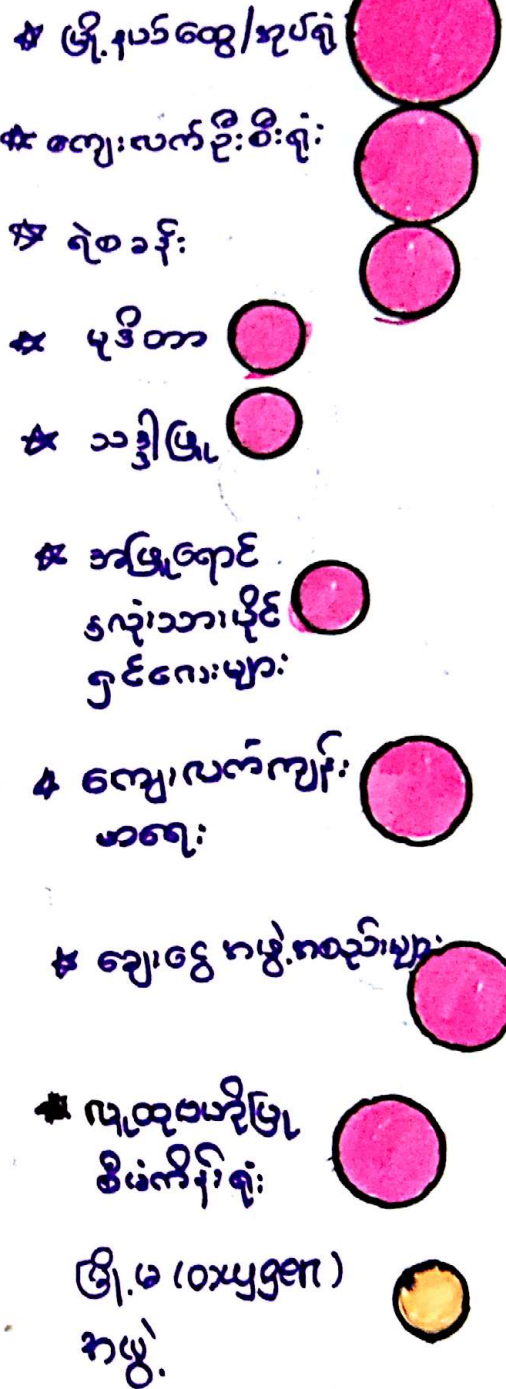 * မြို့နယ်ထွေ/အုပ်ရုံး
* ကျေးလက်ဦးစီးရုံး
* ရဲစခန်း
* မုဒိတာ
* သဒ္ဓါဖြူ
* အဖြူရောင်
နှလုံးသားပိုင်
ရှင်လေးများ
* ကျေးလက်ကျန်း
မာရေး
* ချေးငွေ အဖွဲ့အစည်းများ
* လူထုဗဟိုပြု
စီမံကိန်းရုံး
မြို့မ (oxygen)
အဖွဲ့